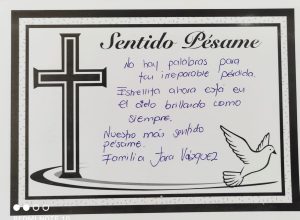 Sentido Pésame
No hay palabras para
tu irreparable pérdida.
Estrellita ahora está en
el cielo brillando como
siempre.
Nuestro más sentido
pésame.
Familia Jara Vásquez